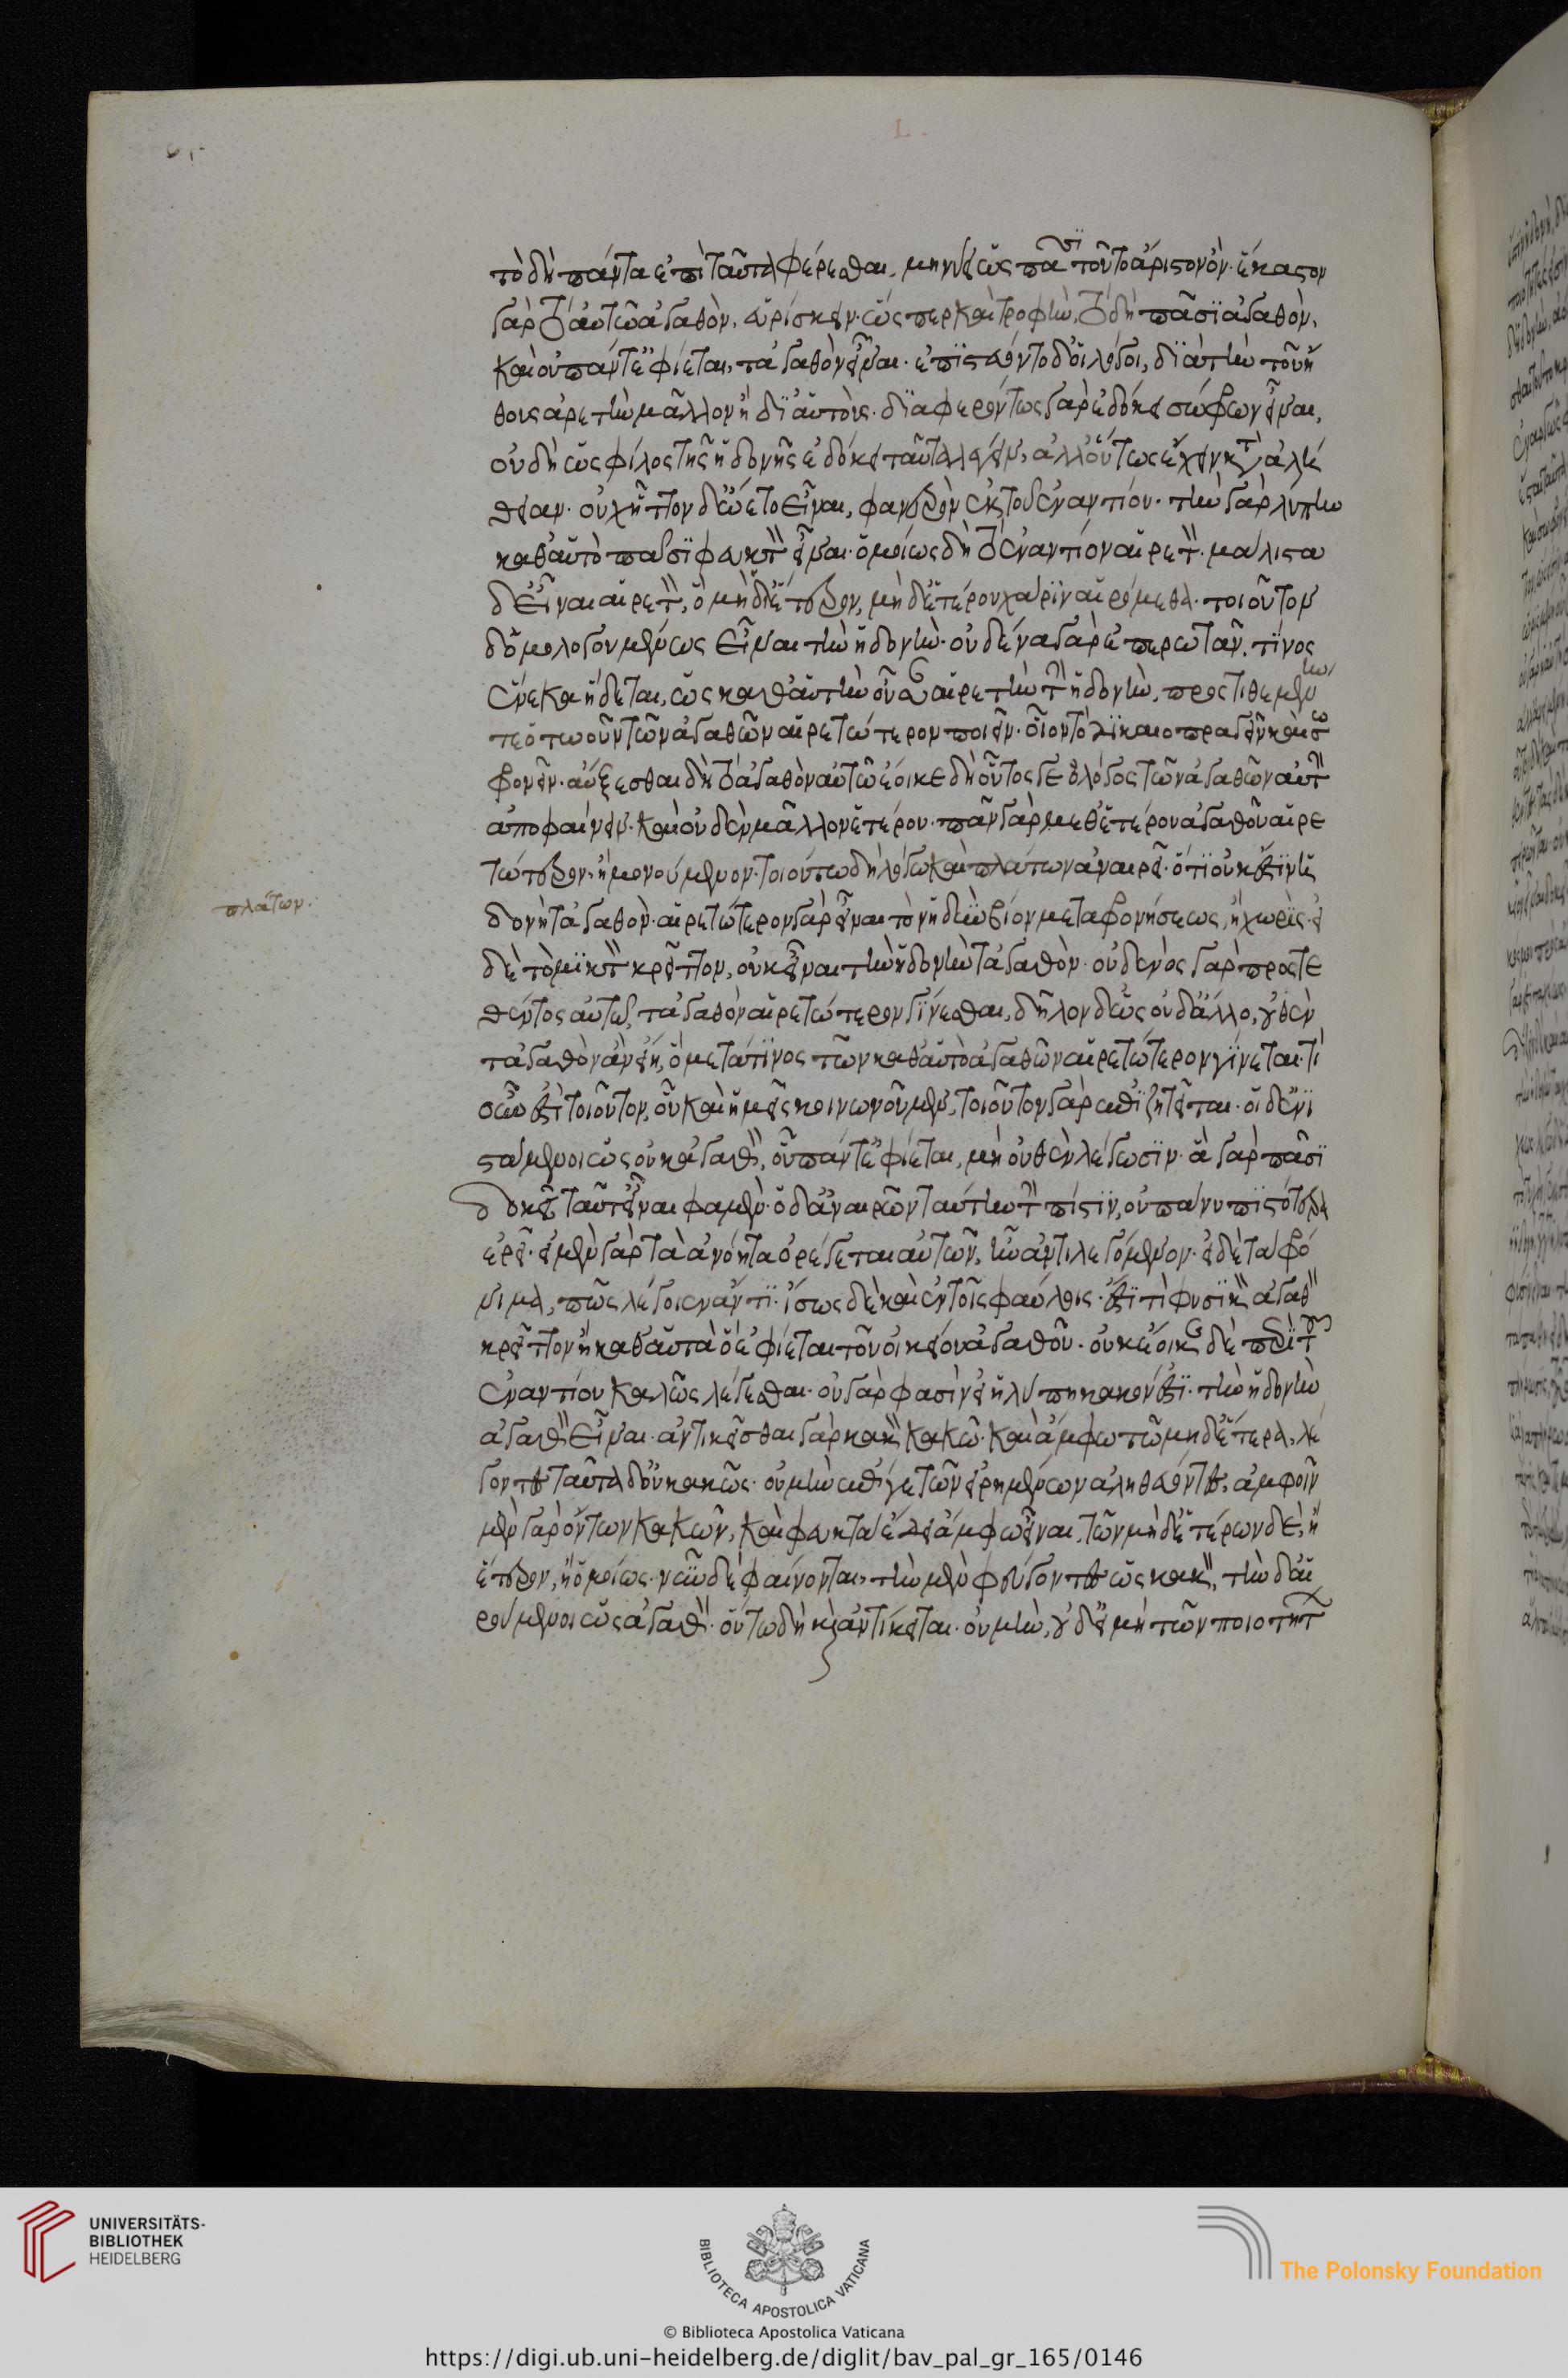 τὸ δὴ πάντα ἐπὶ ταῦτα φέρεσθαι, μηνύει ὡς πᾶσϊ τοῦτο ἄριστον ὄν. ἕκαστον
γὰρ τὸ αὑτῶ ἀγαθὸν, εὑρίσκειν. ὥς περ καὶ τροφὴν, τὸ δὴ πᾶσϊ ἀγαθὸν,
καὶ οὗ πάντ' ἐφίεται, τἀγαθὸν εἶναι. ἐπϊστεύοντο δ' οἱ λόγοι, διὰ τὴν τοῦ ἤ
θους ἀρετὴν μᾶλλον ἢ δι' αὑτούς. διαφερόντως γὰρ ἐδόκει σώφρων εἶναι,
οὐ δὴ ὡς φίλος τῆς ἡδονῆς ἐδόκει ταῦτα λέγειν, ἀλλ' οὕτως ἔχειν κατ' ἀλή
θειαν. οὐχ ἧττον δ' ὤετο εἶναι, φανερὸν ἐκ τοῦ ἐναντίου. τὴν γὰρ λύπην
καθ' αὑτὸ πᾶσϊ φευκτὸν εἶναι. ὁμοίως δὴ τὸ ἐναντίον αἱρετὸν. μάλιστα
δ' εἶναι αἱρετὸν, ὃ μὴ δι' ἕτερον, μὴ δ' ἑτέρου χάρϊν αἱρούμεθα. τοιοῦτον
δ' ὁμολογουμένως εἶναι τὴν ἡδονήν. οὐδένα γὰρ ἐπερωτᾶν, τίνος
ἕνεκα ἥδεται, ὡς καθ' αὑτὴν οὖσαν αἱρετὴν τὴν ἡδονὴν, προστιθεμένην
τε ὁτωοῦν τῶν ἀγαθῶν αἱρετώτερον ποιεῖν. οἷον τὸ δϊκαιοπραγεῖν καὶ σω
φρονεῖν. αὔξεσθαι δὴ τὸ ἀγαθὸν αὑτῶ ἔοικε δὴ οὗτος γε ὁ λόγος τῶν ἀγαθῶν αὐτὴν
ἀποφαίνειν. καὶ οὐδὲν μᾶλλον ἑτέρου. πᾶν γὰρ μεθ' ἑτέρου ἀγαθοῦ αἱρε
τώτερον, ἢ μονούμενον. τοιούτω δὴ λόγω καὶ πλάτων ἀναιρεῖ. ὅτϊ οὐκ ἔστϊν ἡ
πλάτων.
δονὴ τἀγαθὸν. αἱρετώτερον γὰρ εἶναι τὸν ἡδὺν βίον μετὰ φρονήσεως, ἢ χωρίς. εἰ
δὲ τὸ μϊκτὸν κρεῖττον, οὐκ εἶναι τὴν ἡδονὴν τἀγαθὸν. οὐδενὸς γὰρ προστε
θέντος αὐτῶ, τἀγαθὸν αἱρετώτερον γίνεσθαι, δῆλον δ' ὡς οὐδ' ἄλλο, οὐθὲν
τἀγαθὸν ἂν εἴη, ὃ μετά τϊνος τῶν καθ' αὑτὸ ἀγαθῶν αἱρετώτερον γίνεται. τί
οὖν ἐστὶ τοιοῦτον, οὗ καὶ ἡμεῖς κοινωνοῦμεν, τοιοῦτον γὰρ ἐπιζητεῖται. οἱ δ' ἐνϊ
στάμενοι ὡς οὐκ ἀγαθὸν, οὗ πάντ' ἐφίεται, μὴ οὐθὲν λέγωσϊν. ἃ γὰρ πᾶσϊ
δοκεῖ, ταῦτ' εἶναι φαμέν. ὁ δ' ἀναιρῶν ταύτην τὴν πίστϊν, οὐ πάνυ πϊστότερα
ἐρεῖ. εἰ μὲν γὰρ τὰ ἀνόητα ὀρέγεται αὐτῶν, ἦν ἂν τι λεγόμενον. εἰ δὲ τὰ φρό
νιμα, πῶς λέγοιεν ἄν τϊ. ἴσως δὲ καὶ ἐν τοῖς φαύλοις. ἔστϊ τὶ φυσϊκὸν ἀγαθὸν
κρεῖττον ἢ καθ' αὑτὰ ὃ ἐφίεται τοῦ οἰκείου ἀγαθοῦ. οὐκ ἔοικε δὲ περὶ τοῦ
ἐναντίου καλῶς λέγεσθαι. οὐ γὰρ φασὶν εἰ ἡ λύπη κακόν ἐστϊ. τὴν ἡδονὴν
ἀγαθὸν εἶναι. ἀντικεῖσθαι γὰρ κακὸν κακῶ. καὶ ἄμφω τῶ μηδ' ἕτερα, λέ
γοντες ταῦτα δ' οὐ κακῶς. οὐ μὴν ἐπί γε τῶν εἰρημένων ἀληθεύοντες, ἀμφοῖν
μὲν γὰρ ὄντων κακῶν, καὶ φευκτὰ ἔδει ἄμφω εἶναι. τῶν μὴ δ' ἑτέρων δὲ, ἢ
ἕτερον, ἢ ὁμοίως. νῦν δὲ φαίνονται, τὴν μὲν φεύγοντες ὡς κακὸν, τὴν δ' αἱ
ρούμενοι ὡς ἀγαθὸν. οὕτω δὴ καὶ ἀντίκειται. οὐ μὴν, οὐδ' εἰ μὴ τῶν ποιοτήτων
UNIVERSITÄTS-
BIBLIOTHEK
HEIDELBERG
BIBLIOTECA APOSTOLICA VATICANA
The Polonsky Foundation
© Biblioteca Apostolica Vaticana
https://digi.ub.uni-heidelberg.de/diglit/bav_pal_gr_165/0146